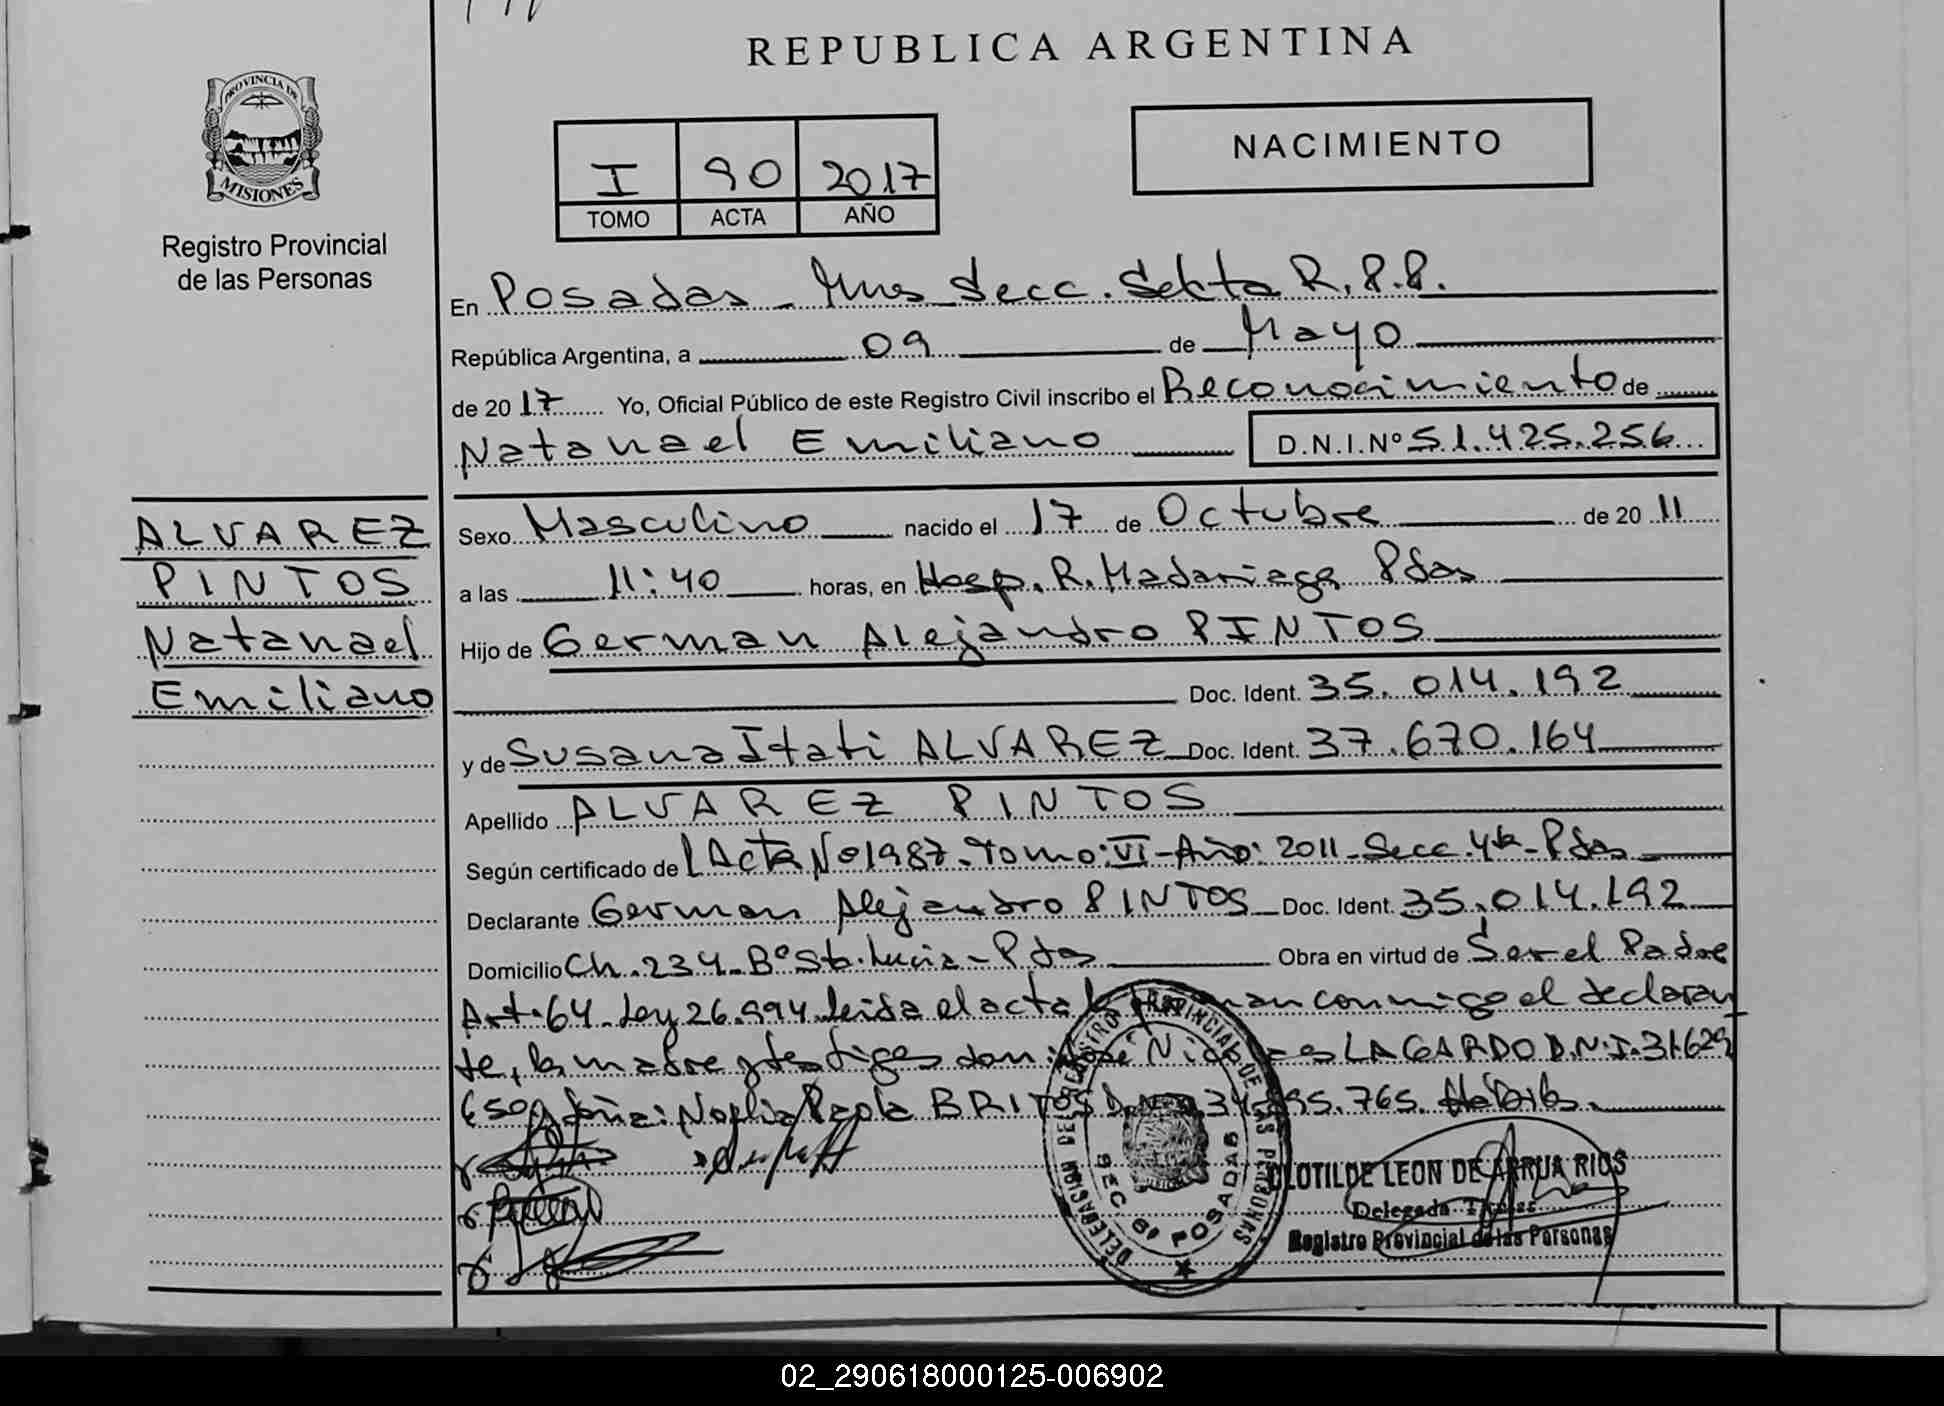 REPUBLICA ARGENTINA
PROVINCIA DE
MISIONES
Registro Provincial
de las Personas
I 90 2017
TOMO ACTA AÑO
NACIMIENTO
En Posadas - Mnes Secc. Sexta R.P.P.
República Argentina, a 09 de Mayo
de 2017 Yo, Oficial Público de este Registro Civil inscribo el Reconocimiento de
Natanael Emiliano D.N.I.Nº 51.425.256
ALVAREZ
PINTOS
Natanael
Emiliano
Sexo Masculino nacido el 17 de Octubre de 2011
a las 11:40 horas, en Hosp. R. Madariaga Pdas
Hijo de German Alejandro PINTOS
Doc. Ident. 35.014.192
y de Susana Itati ALVAREZ Doc. Ident. 37.670.164
Apellido ALVAREZ PINTOS
Según certificado de Acta Nº 1987-Tomo:VI-Año: 2011-Secc. 4ta-Pdas
Declarante German Alejandro PINTOS Doc. Ident. 35.014.192
Domicilio Ch. 234-Bº Sta. Lucia-Pdas Obra en virtud de Ser el Padre
Art. 64-Ley 26.994 leida el acta la conmigo el declaran
te, la madre y testigos don: Jose LAGARDO D.N.I. 31.629
650 y doña: Noelia Paola BRITOS 765.
DELEGACION DEL REGISTRO PROVINCIAL DE LAS PERSONAS
SEC 6ª POSADAS
CLOTILDE LEON DE ARRUA RIOS
Delegada Titular
Registro Provincial de las Personas
02_290618000125-006902